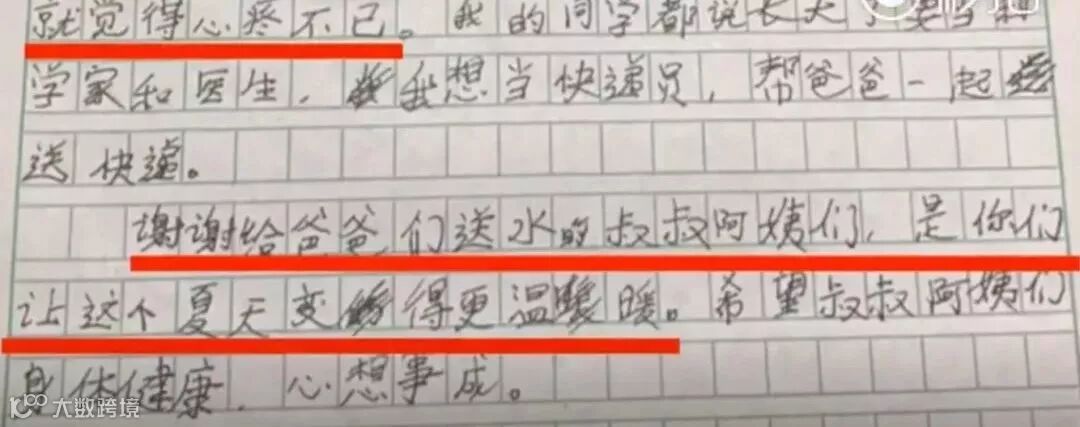 就觉得心疼不已。我的同学都说长大了要当科
学家和医生，我想当快递员，帮爸爸一起
送快递。
谢谢给爸爸们送水的叔叔阿姨们，是你们
让这个夏天变得更温暖。希望叔叔阿姨们
身体健康，心想事成。
大数跨境